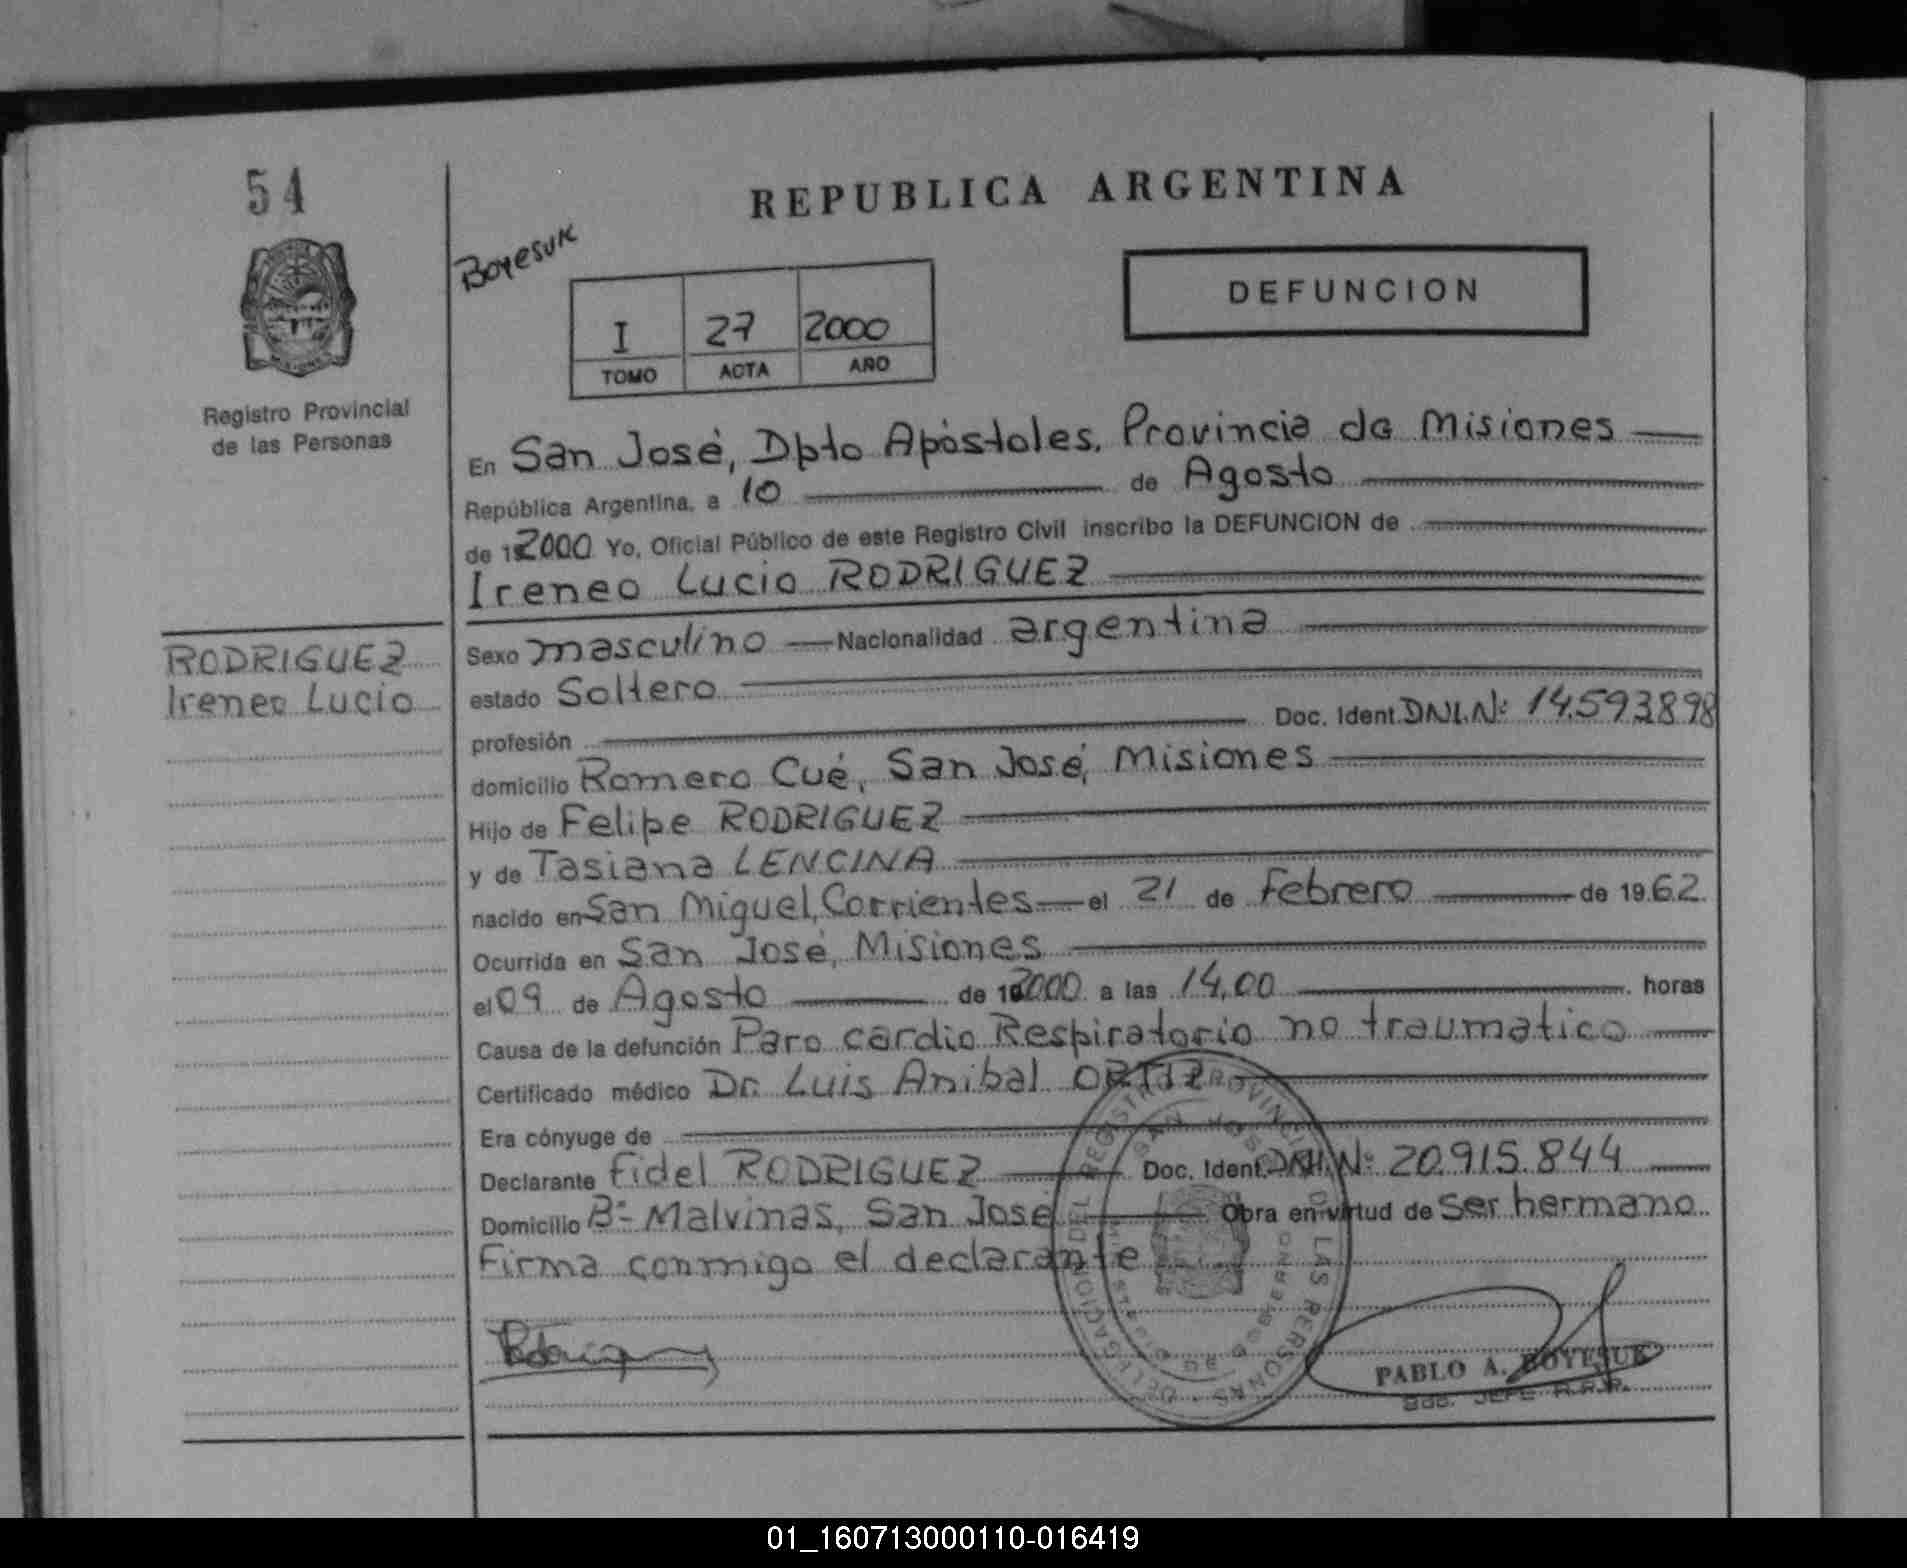 54
REPUBLICA ARGENTINA
Boyesuk
DEFUNCION
I 27 2000
TOMO ACTA AÑO
Registro Provincial
de las Personas
En San José, Dpto Apóstoles, Provincia de Misiones
República Argentina, a 10 de Agosto
de 192000 Yo, Oficial Público de este Registro Civil inscribo la DEFUNCION de
Ireneo Lucio RODRIGUEZ
RODRIGUEZ
Ireneo Lucio
Sexo masculino Nacionalidad argentina
estado Soltero
profesión Doc. Ident. DNI.Nº 14.593.898
domicilio Romero Cué, San José, Misiones
Hijo de Felipe RODRIGUEZ
y de Tasiana LENCINA
nacido en San Miguel, Corrientes el 21 de Febrero de 1962.
Ocurrida en San José, Misiones
el 09 de Agosto de 192000 a las 14,00 horas
Causa de la defunción Paro cardio Respiratorio no traumatico
Certificado médico Dr. Luis Anibal ORTIZ
Era cónyuge de
Declarante Fidel RODRIGUEZ Doc. Ident. DNI.Nº 20.915.844
Domicilio Bº Malvinas, San José Obra en virtud de ser hermano
Firma conmigo el declarante
DELEGACION DEL REGISTRO PROVINCIAL DE LAS PERSONAS
SAN JOSE
PABLO A. BOYESUK
JEFE R.P.P.
01_160713000110-016419